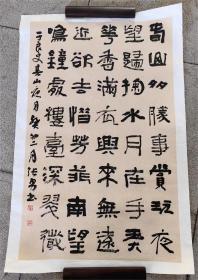 春山多勝事賞玩夜
望歸掬水月在手弄
花香滿衣興來無遠
近欲去惜芳菲南望
鳴鐘處樓臺深翠微
于良史春山夜月癸月書